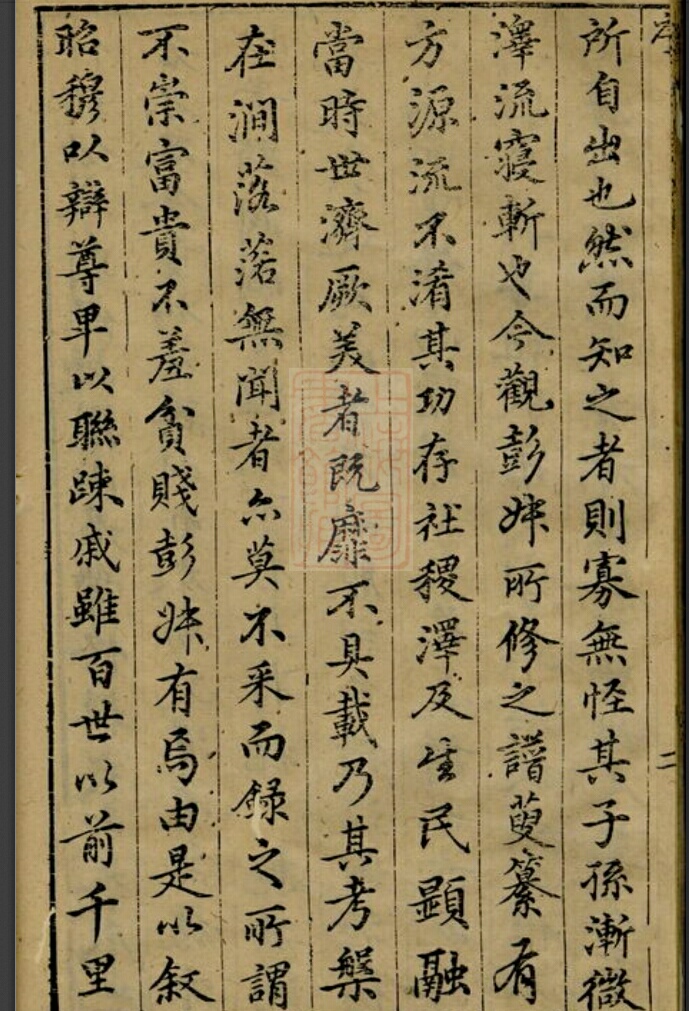 序
二
所自出也然而知之者則寡無怪其子孫漸微
澤流寖斬也今觀彭城所修之譜蒐纂有
方源流不淆其功存社稷澤及生民顯融
當時世濟厥美者既靡不具載乃其考槃
在澗落落無聞者亦莫不采而録之所謂
不崇富貴不羞貧賤彭城有焉由是以叙
昭穆以辯尊卑以聯踈戚雖百世以前千里